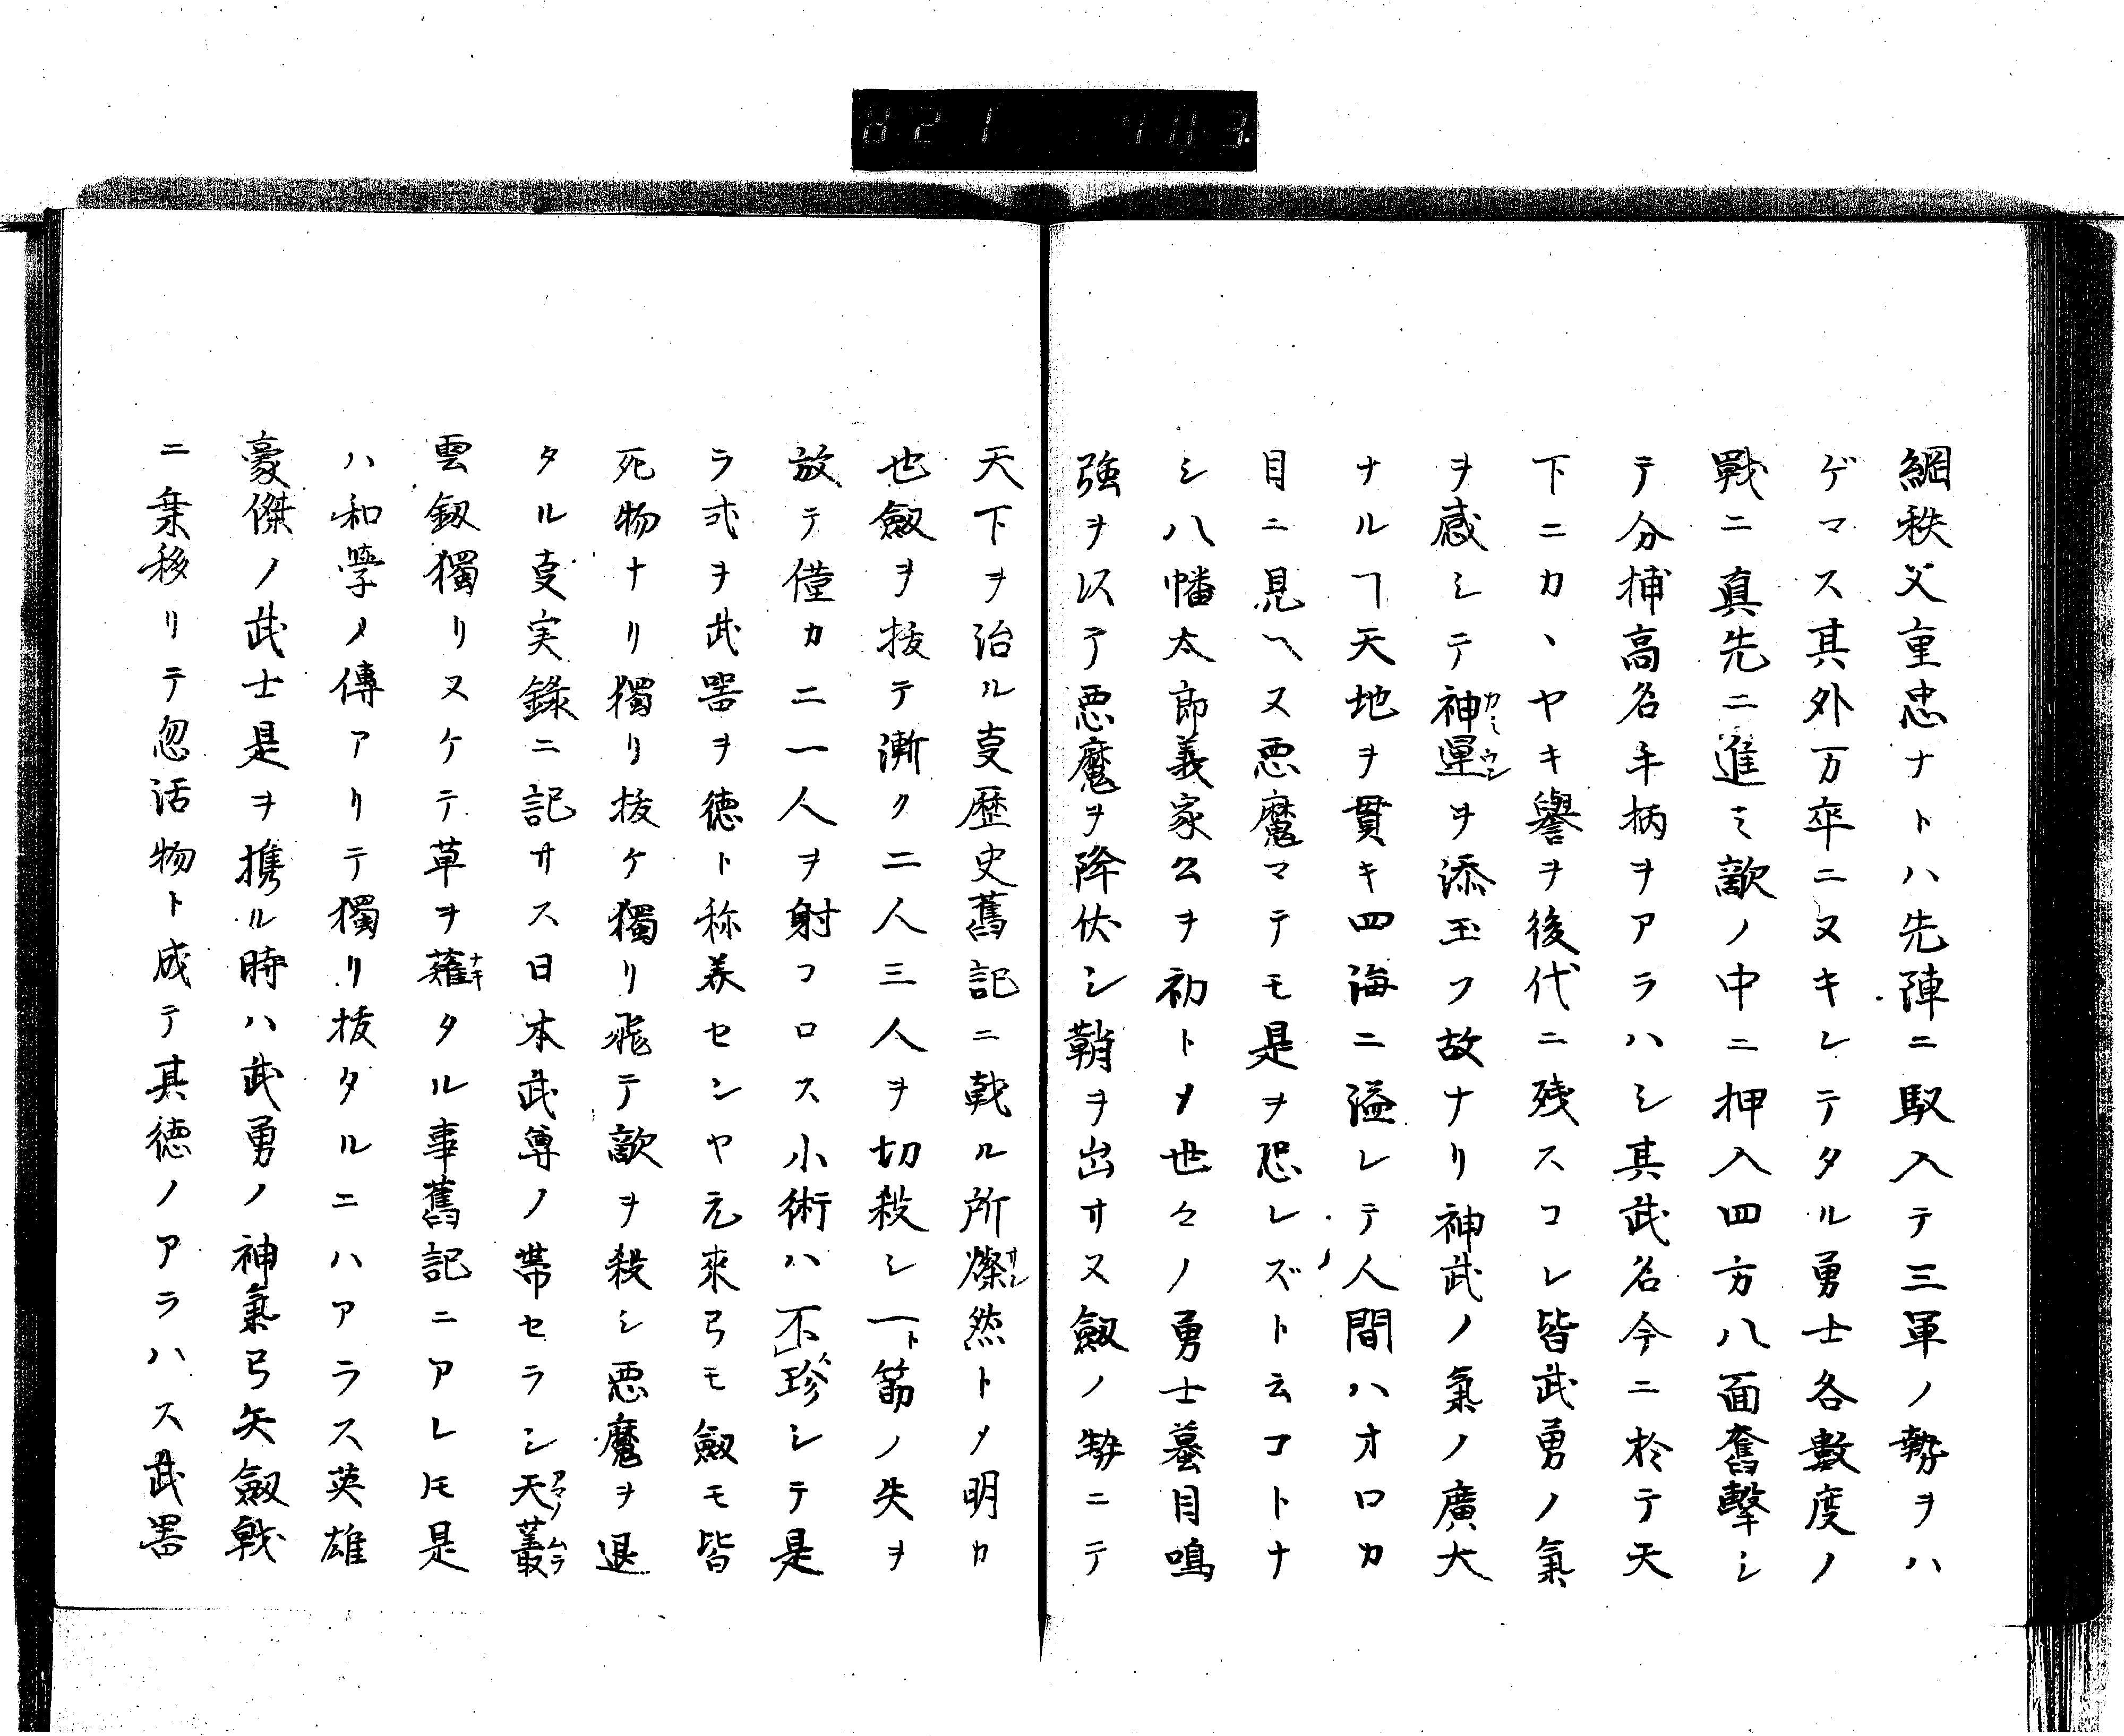 821 403
綱秩父重忠ナトハ先陣ニ馭入テ三軍ノ勢ヲハ
ゲマス其外万卒ニヌキンテタル勇士各數度ノ
戰ニ真先ニ進ミ敵ノ中ニ押入四方八面奮擊シ
テ分捕高名手柄ヲアラハシ其武名今ニ於テ天
下ニカヽヤキ譽ヲ後代ニ残スコレ皆武勇ノ氣
ヲ感シテ神運ヲ添玉フ故ナリ神武ノ氣ノ廣大
ナルヿ天地ヲ貫キ四海ニ溢レテ人間ハオロカ
目ニ見ヘヌ悪魔マテモ是ヲ恐レズト云コトナ
シ八幡太郎義家公ヲ初トメ世々ノ勇士蟇目鳴
強ヲ以テ悪魔ヲ降伏シ鞘ヲ出サヌ劔ノ勢ニテ
天下ヲ治ル叓歴史舊記ニ戟ル所燦然トメ明カ
也劔ヲ抜テ漸ク二人三人ヲ切殺シ一ト筋ノ失ヲ
放テ僅カニ一人ヲ射コロス小術ハ不珍シテ是
ラ弐ヲ武噐ヲ徳ト称美センヤ元來弓モ劔モ皆
死物ナリ獨リ抜ケ獨リ飛テ敵ヲ殺シ悪魔ヲ退
タル叓実錄ニ記サス日本武尊ノ帯セラシ天叢
雲釼獨リヌケテ草ヲ薙タル事舊記ニアレ𪜈是
ハ和學ノ傳アリテ獨リ抜タルニハアラス英雄
豪傑ノ武士是ヲ携ル時ハ武勇ノ神氣弓矢劔戟
ニ乗移リテ忽活物ト成テ其徳ノアラハス武噐